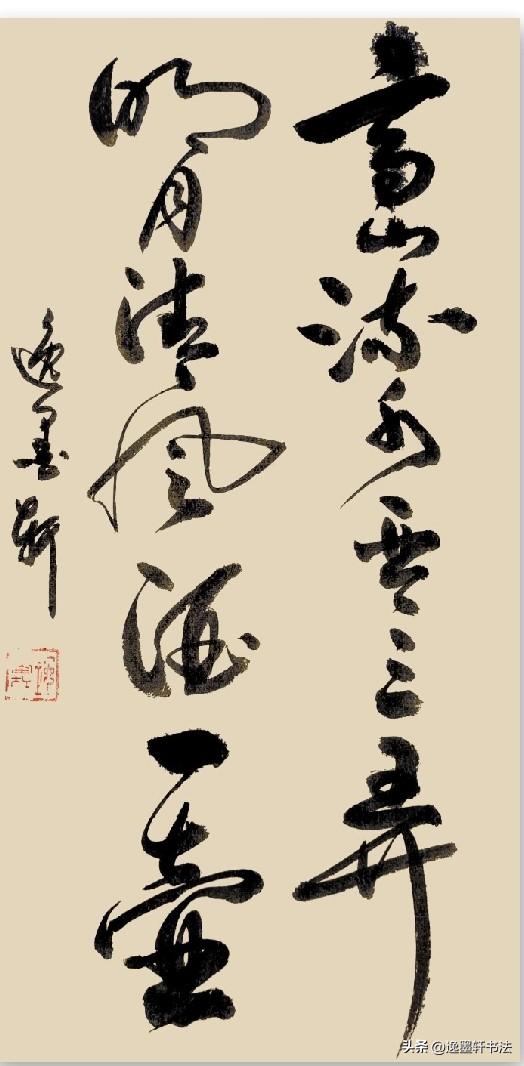 高山流水琴三弄
明月清风酒一壶
逸墨轩
头条 @逸墨轩书法